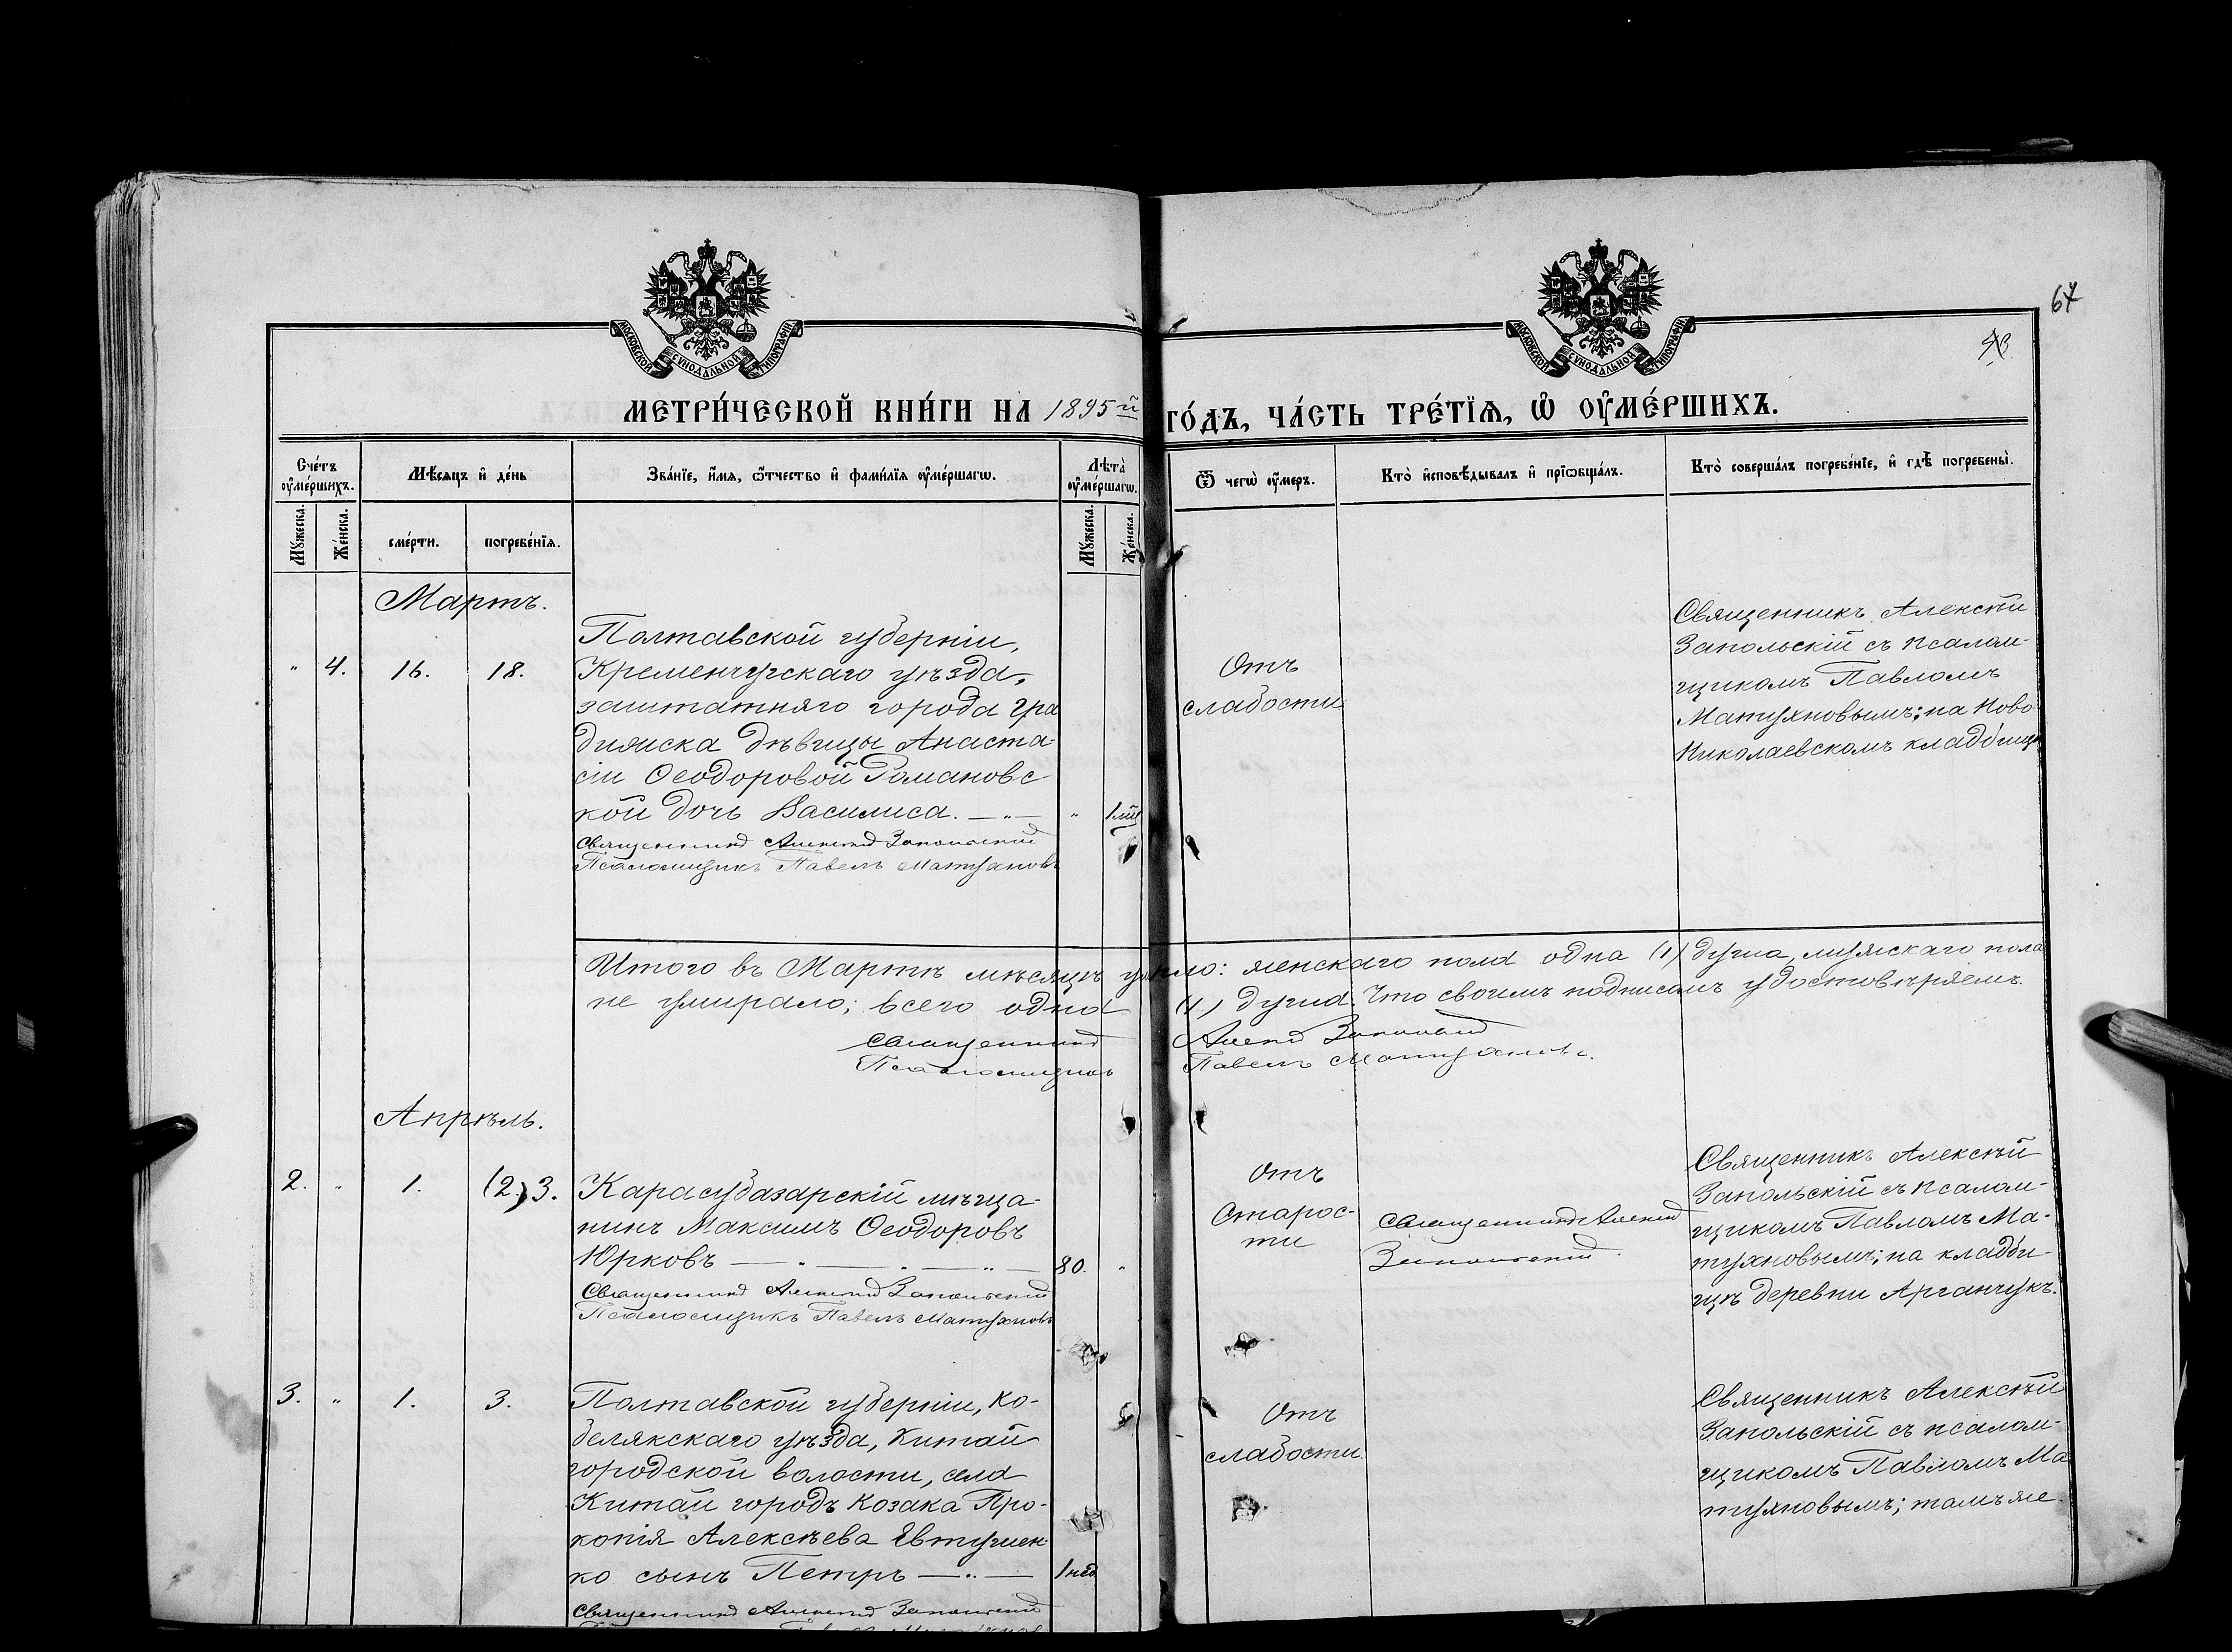 67
МОСКОВСКОЙ СѴНОДАЛЬНОЙ ТИПОГРАФІИ
МОСКОВСКОЙ СѴНОДАЛЬНОЙ ТИПОГРАФІИ
МЕТРИ́ЧЕСКОЙ КНИ́ГИ НА 1895й ГО́ДЪ, ЧА́СТЬ ТРЕ́ТЇѦ, Ѽ ОУ҆МЕ́РШИХЪ.
Сче́тъ оу҆ме́ршихъ.
Мѣ́сяцъ и҆ де́нь
Зва́нїе, и҆́мѧ, ѻ҆́тчество и҆ фами́лїѧ оу҆ме́ршагѡ.
Лѣта̀ оу҆ме́ршагѡ.
Ѿ чегѡ̀ оу҆́меръ.
Кто̀ и҆сповѣ́дывалъ и҆ прїѡбща́лъ.
Кто̀ соверша́лъ погребе́нїе, и҆ гдѣ̀ погребены̀.
Мꙋ́жеска.
Же́нска.
сме́рти.
погребе́нїѧ.
Мꙋ́жеска.
Же́нска.
Мартъ.
" 4. 16. 18.
Полтавской губерніи,
Кременчугскаго уѣзда,
заштатняго города Гра
дижска дѣвицы Анаста-
сіи Ѳеодоровой Романовс-
кой дочь Василиса. —"—
"
Священникъ Алексій Запольскій
Псаломщикъ Павелъ Матухновъ
Отъ
слабости
Священникъ Алексѣй
Запольскій съ псалом-
щикомъ Павломъ
Матухновымъ; на Ново
Николаевскомъ кладбищѣ
Итого въ Мартѣ мѣсяцѣ умерло: женскаго пола одна (1) душа, мужскаго пола
не умирало; всего одна (1) душа. Что своимъ подписомъ удостовѣряемъ.
Священникъ Алексій Запольскій
Псаломщикъ Павелъ Матухновъ.
Апрѣль.
2. " 1. (2.) 3.
Карасубазарскій мѣща-
нинъ Максимъ Ѳеодоровъ
Юрковъ — " — " — " — 80. "
Священникъ Алексій Запольскій
Псаломщикъ Павелъ Матухновъ
Отъ
Старос-
ти
Священникъ Алексій
Запольскій.
Священникъ Алексѣй
Запольскій съ псалом-
щикомъ Павломъ Ма-
тухновымъ; на кладби-
щѣ деревни Арганчукъ.
3. " 1. 3.
Полтавской губерніи, Ко-
белякскаго уѣзда, Китай
городской волости, села
Китай городъ Козака Про-
копія Алексѣева Евтушен-
ко сынъ Петръ —"— 1 нед
Священникъ Алексій Запольскій
Отъ
слабости.
Священникъ Алексѣй
Запольскій съ псалом-
щикомъ Павломъ Ма
тухновымъ; тамъ же.